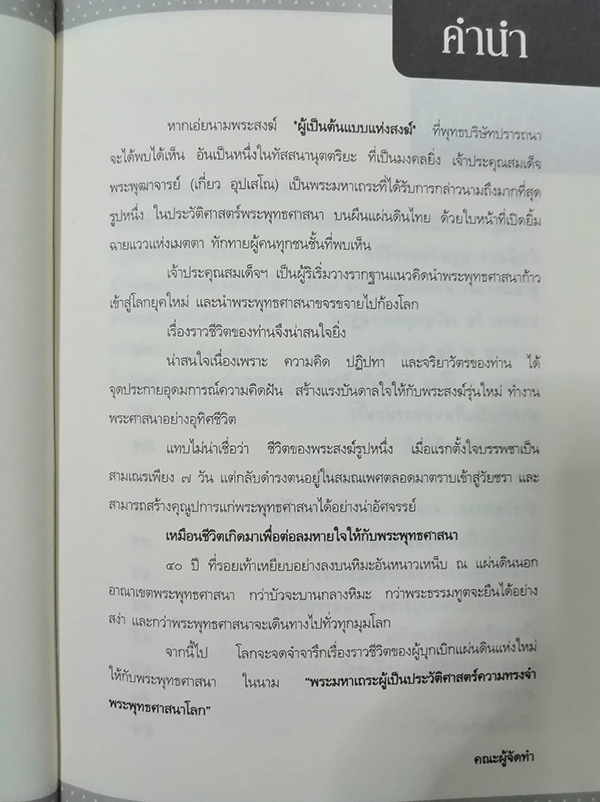 คำนำ
หากเอ่ยนามพระสงฆ์ "ผู้เป็นต้นแบบแห่งสงฆ์" ที่พุทธบริษัทปรารถนา
จะได้พบได้เห็น อันเป็นหนึ่งในทัสสนานุตตริยะ ที่เป็นมงคลยิ่ง เจ้าประคุณสมเด็จ
พระพุฒาจารย์ (เกี่ยว อุปเสโณ) เป็นพระมหาเถระที่ได้รับการกล่าวนามถึงมากที่สุด
รูปหนึ่ง ในประวัติศาสตร์พระพุทธศาสนา บนผืนแผ่นดินไทย ด้วยใบหน้าที่เปิดยิ้ม
ฉายแววแห่งเมตตา ทักทายผู้คนทุกชนชั้นที่พบเห็น
เจ้าประคุณสมเด็จฯ เป็นผู้ริเริ่มวางรากฐานแนวคิดนำพระพุทธศาสนาก้าว
เข้าสู่โลกยุคใหม่ และนำพระพุทธศาสนาขจรขจายไปก้องโลก
เรื่องราวชีวิตของท่านจึงน่าสนใจยิ่ง
น่าสนใจเนื่องเพราะ ความคิด ปฏิปทา และจริยาวัตรของท่าน ได้
จุดประกายอุดมการณ์ความคิดฝัน สร้างแรงบันดาลใจให้กับพระสงฆ์รุ่นใหม่ ทำงาน
พระศาสนาอย่างอุทิศชีวิต
แทบไม่น่าเชื่อว่า ชีวิตของพระสงฆ์รูปหนึ่ง เมื่อแรกตั้งใจบรรพชาเป็น
สามเณรเพียง ๗ วัน แต่กลับดำรงตนอยู่ในสมณเพศตลอดมาตราบเข้าสู่วัยชรา และ
สามารถสร้างคุณูปการแก่พระพุทธศาสนาได้อย่างน่าอัศจรรย์
เหมือนชีวิตเกิดมาเพื่อต่อลมหายใจให้กับพระพุทธศาสนา
๔๐ ปี ที่รอยเท้าเหยียบอย่างลงบนหิมะอันหนาวเหน็บ ณ แผ่นดินนอก
อาณาเขตพระพุทธศาสนา กว่าบัวจะบานกลางหิมะ กว่าพระธรรมทูตจะยืนได้อย่าง
สง่า และกว่าพระพุทธศาสนาจะเดินทางไปทั่วทุกมุมโลก
จากนี้ไป โลกจะจดจำจารึกเรื่องราวชีวิตของผู้บุกเบิกแผ่นดินแห่งใหม่
ให้กับพระพุทธศาสนา ในนาม "พระมหาเถระผู้เป็นประวัติศาสตร์ความทรงจำ
พระพุทธศาสนาโลก"
คณะผู้จัดทำ